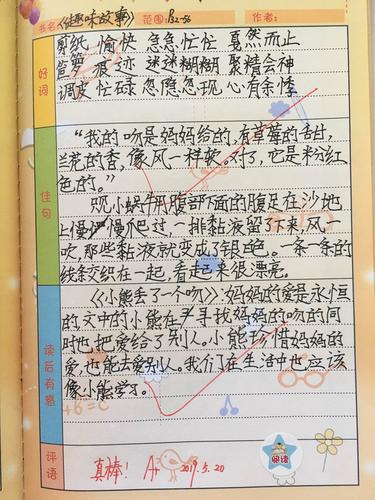 书名《趣味故事》 范围：P52-56 作者：
好词
剪纸 愉快 急急忙忙 戛然而止
箩 痕迹 迷迷糊糊 聚精会神
调皮 忙碌 忽隐忽现 心有余悸
佳句
“我的吻是妈妈给的，有草莓的甜，
兰花的香，像风一样软。对了，它是粉红
色的。”
小蜗牛用腹部下面的腹足在沙地
上慢慢爬过，一排黏液留了下来，风一
吹，那些黏液就变成了银色。一条一条的
线条交织在一起，看起来很漂亮。
读后有感
《小熊丢了一个吻》：妈妈的爱是永恒
的，文中的小熊在寻找妈妈的吻的同
时也把爱给了别人。小熊珍惜妈妈的
爱，也能去爱别人。我们在生活中也应该
像小熊学习。
评语
真棒！ A+ 2019.5.20
悦读